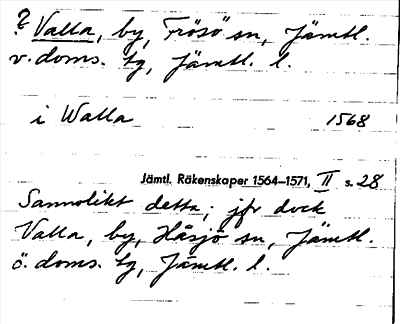 ? Valla, by, Frösö sn, Jämtl.
v. doms. tg, Jämtl. l.
i Walla 1568
Jämtl. Räkenskaper 1564–1571, II s. 28
Sannolikt detta; jfr dock
Valla, by, Håsjö sn, Jämtl.
ö. doms. tg, Jämtl. l.